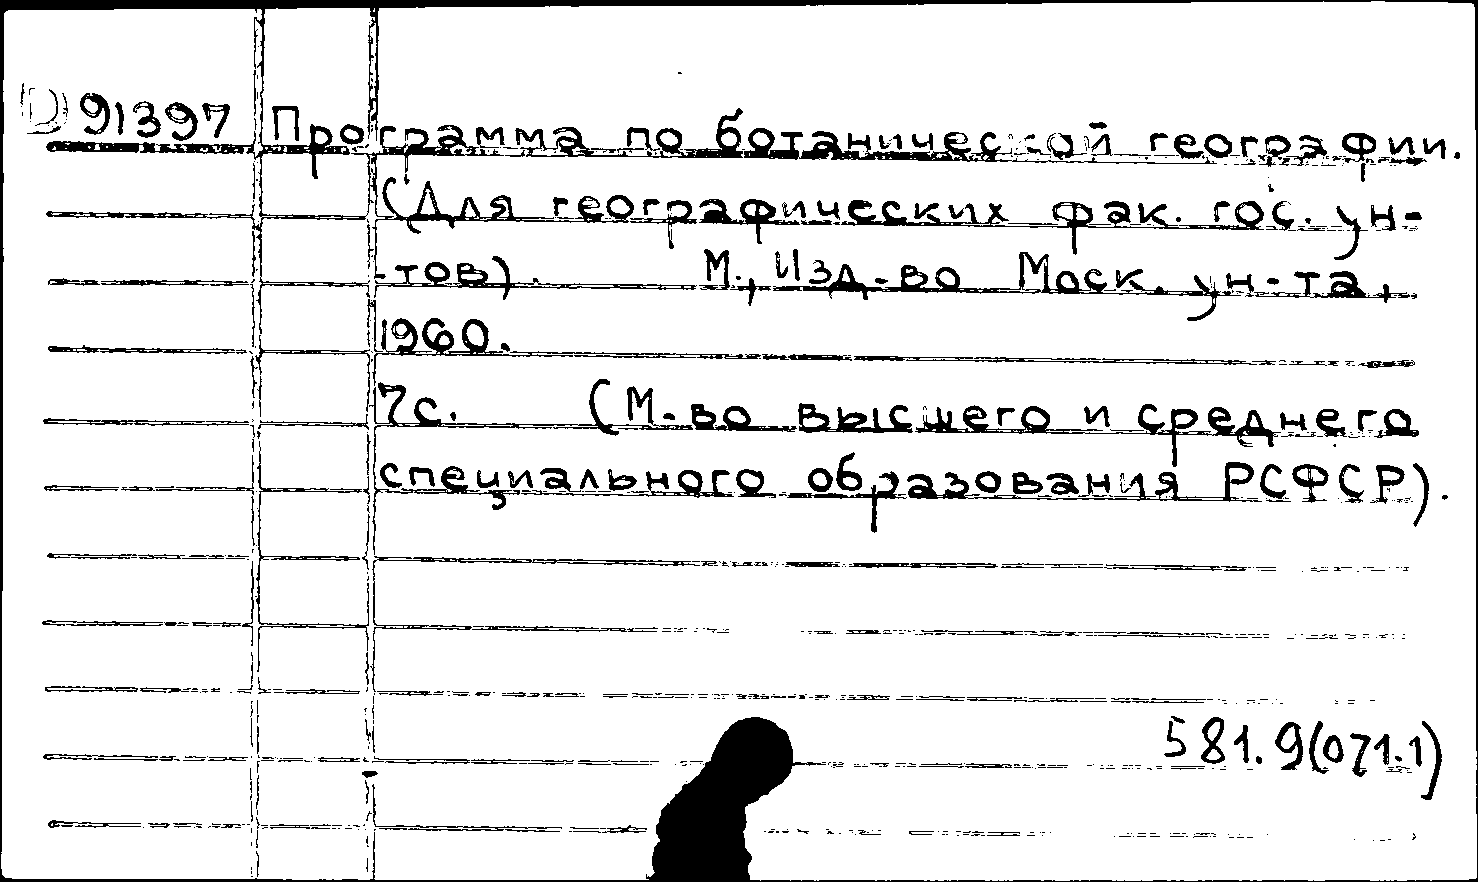 D 91397 Программа по ботанической географии.
(Для географических фак. гос. ун-
-тов). М., Изд-во Моск. ун-та,
1960.
7с. (М-во высшего и среднего
специального образования РСФСР).
581.9(071.1)